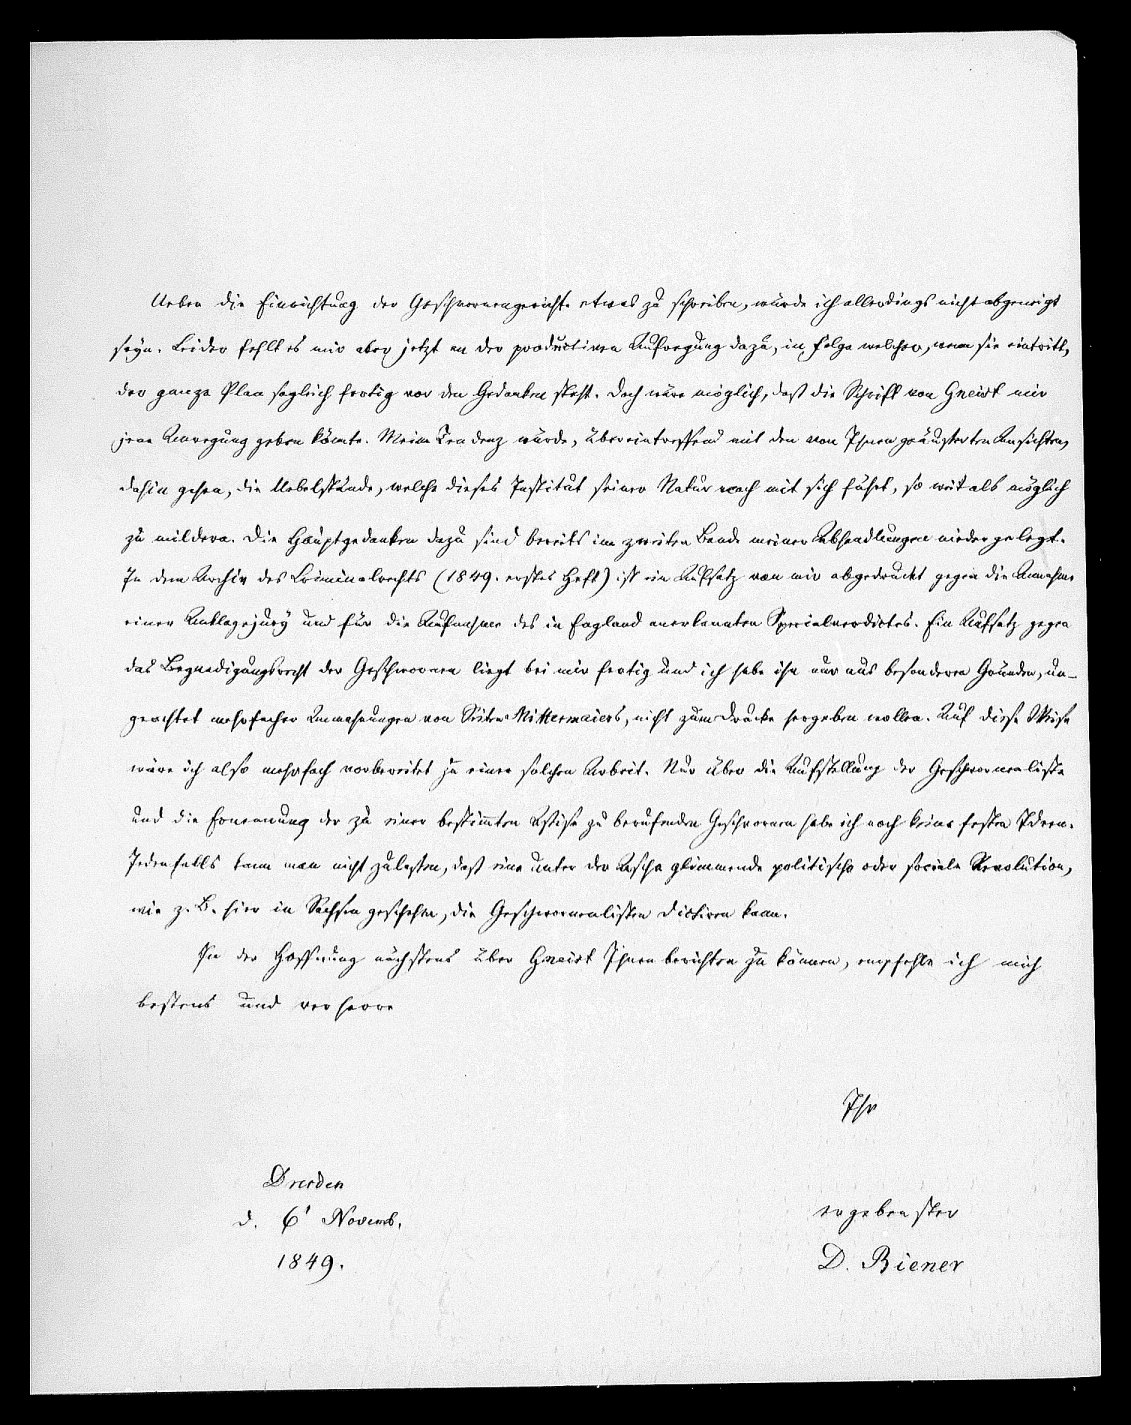 Ueber die Einrichtung der Geschwornengerichte etwas zu schreiben, würde ich allerdings nicht abgeneigt
seyn. Leider fehlt es mir aber jetzt an der productiven Aufregung dazu, in Folge welcher, wenn sie eintritt,
der ganze Plan sogleich fertig vor den Gedanken steht. Doch wäre möglich, daß die Schrift von Gneist mir
jene Anregung geben könnte. Meine Tendenz würde, übereintreffend mit den von Ihnen geäußerten Ansichten,
dahin gehen, die Uebelstände, welche dieses Institut seiner Natur nach mit sich führt, so weit als möglich
zu mildern. Die Hauptgedanken dazu sind bereits im zweiten Bande meiner Abhandlungen niedergelegt.
In dem Archiv des Criminalrechts (1849. erstes Heft) ist ein Aufsatz von mir abgedruckt gegen die Annahme
einer Anklagejury und für die Aufnahme des in England anerkannten Specialverdictes. Ein Aufsatz gegen
das Begnadigungsrecht der Geschwornen liegt bei mir fertig und ich habe ihn nur aus besonderen Gründen, un-
geachtet mehrfacher Anmahnungen von Seiten Mittermaiers, nicht zum Drucke hergeben wollen. Auf diese Weise
wäre ich also mehrfach vorbereitet zu einer solchen Arbeit. Nur über die Aufstellung der Geschwornenliste
und die Ernennung der zu einer bestimmten Assise zu berufenden Geschwornen habe ich noch keine festen Ideen.
Jedenfalls kann man nicht zulassen, daß eine unter der Asche glimmende politische oder sociale Revolution,
wie z. B. hier in Sachsen geschehen, die Geschwornenlisten dictiren kann.
In der Hoffnung nächstens über Gneist Ihnen berichten zu können, empfehle ich mich
bestens und verharre
Ihr
Dresden
d. 6' Novemb.
1849.
ergebenster
D. Biener